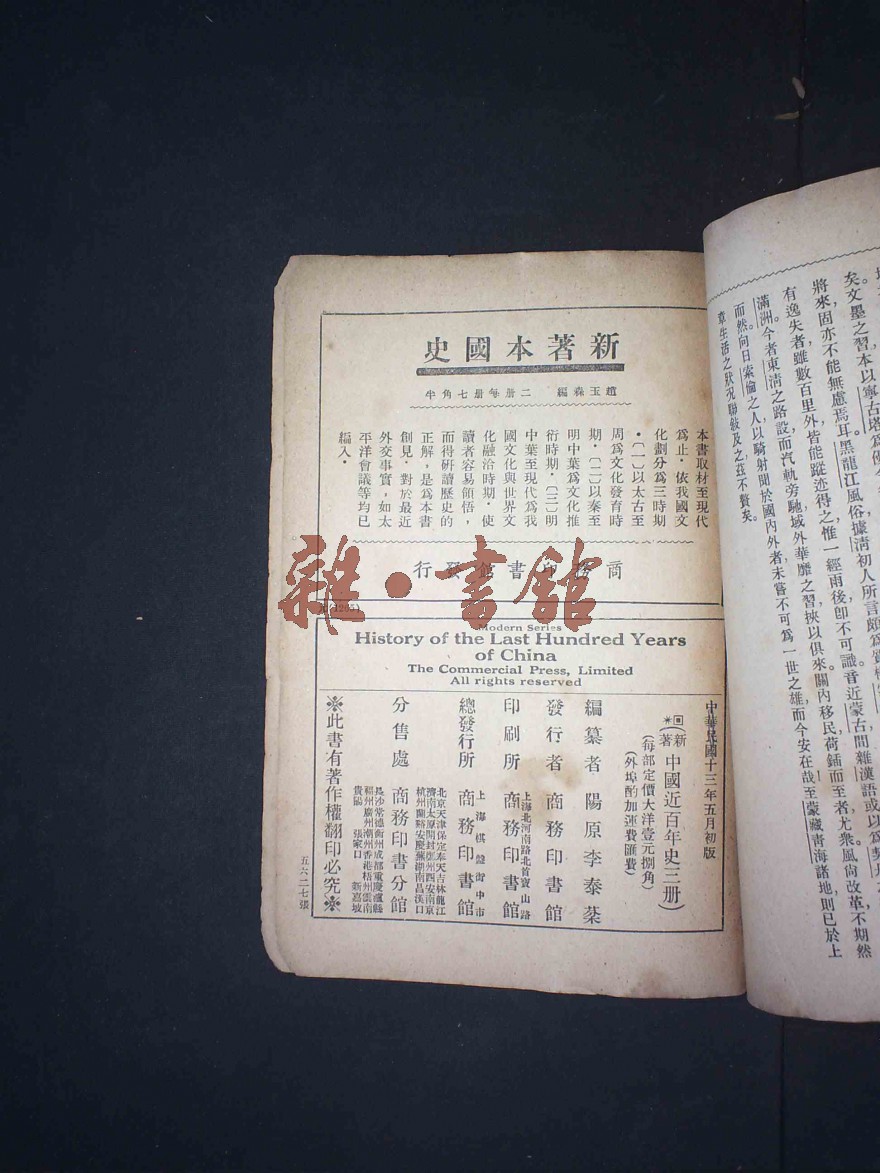 新著本國史
趙玉森編　二册每册七角半
本書取材至現代
爲止・依我國文
化劃分爲三時期
・(一)以太古至
周爲文化發育時
期・(二)以秦至
明中葉爲文化推
衍時期・(三)明
中葉至現代爲我
國文化與世界文
化融洽時期・使
讀者容易領悟,
而得研讀歷史的
正解,是爲本書
創見・對於最近
外交事實,如太
平洋會議等均已
編入・
商務印書館發行
Modern Series
History of the Last Hundred Years
of China
The Commercial Press, Limited
All rights reserved
中華民國十三年五月初版
(新著 中國近百年史三册)
(每部定價大洋壹元捌角)
(外埠酌加運費匯費)
編纂者 陽原李泰棻
發行者 商務印書館
印刷所 上海北河南路北首寶山路 商務印書館
總發行所 上海棋盤街中市 商務印書館
分售處 商務印書分館
北京天津保定奉天吉林龍江
濟南太原開封鄭州西安南京
杭州蘭谿安慶蕪湖南昌漢口
長沙常德衡州成都重慶瀘縣
福州廣州潮州香港梧州雲南
貴陽 張家口 新嘉坡
※此書有著作權翻印必究※
五六二七張
矣。文墨之習,本以寧古塔爲
將來固亦不能無慮焉耳。黑龍江風俗,據清初人所言,頗爲質樸
有逸失者,雖數百里外,皆能蹤迹得之,惟一經雨後,卽不可識。音近蒙古,間雜漢語,或以爲契丹
滿洲。今者東淸之路設,而汽軌旁馳,域外華靡之習,挾以俱來。關內移民,荷鍤而至者尤衆。風尙改革,不期然
而然。向日索倫之人,以騎射聞於國內外者,未嘗不可爲一世之雄,而今安在哉。至蒙藏靑海諸地,則已於上
章生活之狀況聯敍及之,茲不贅矣。
雜・書館